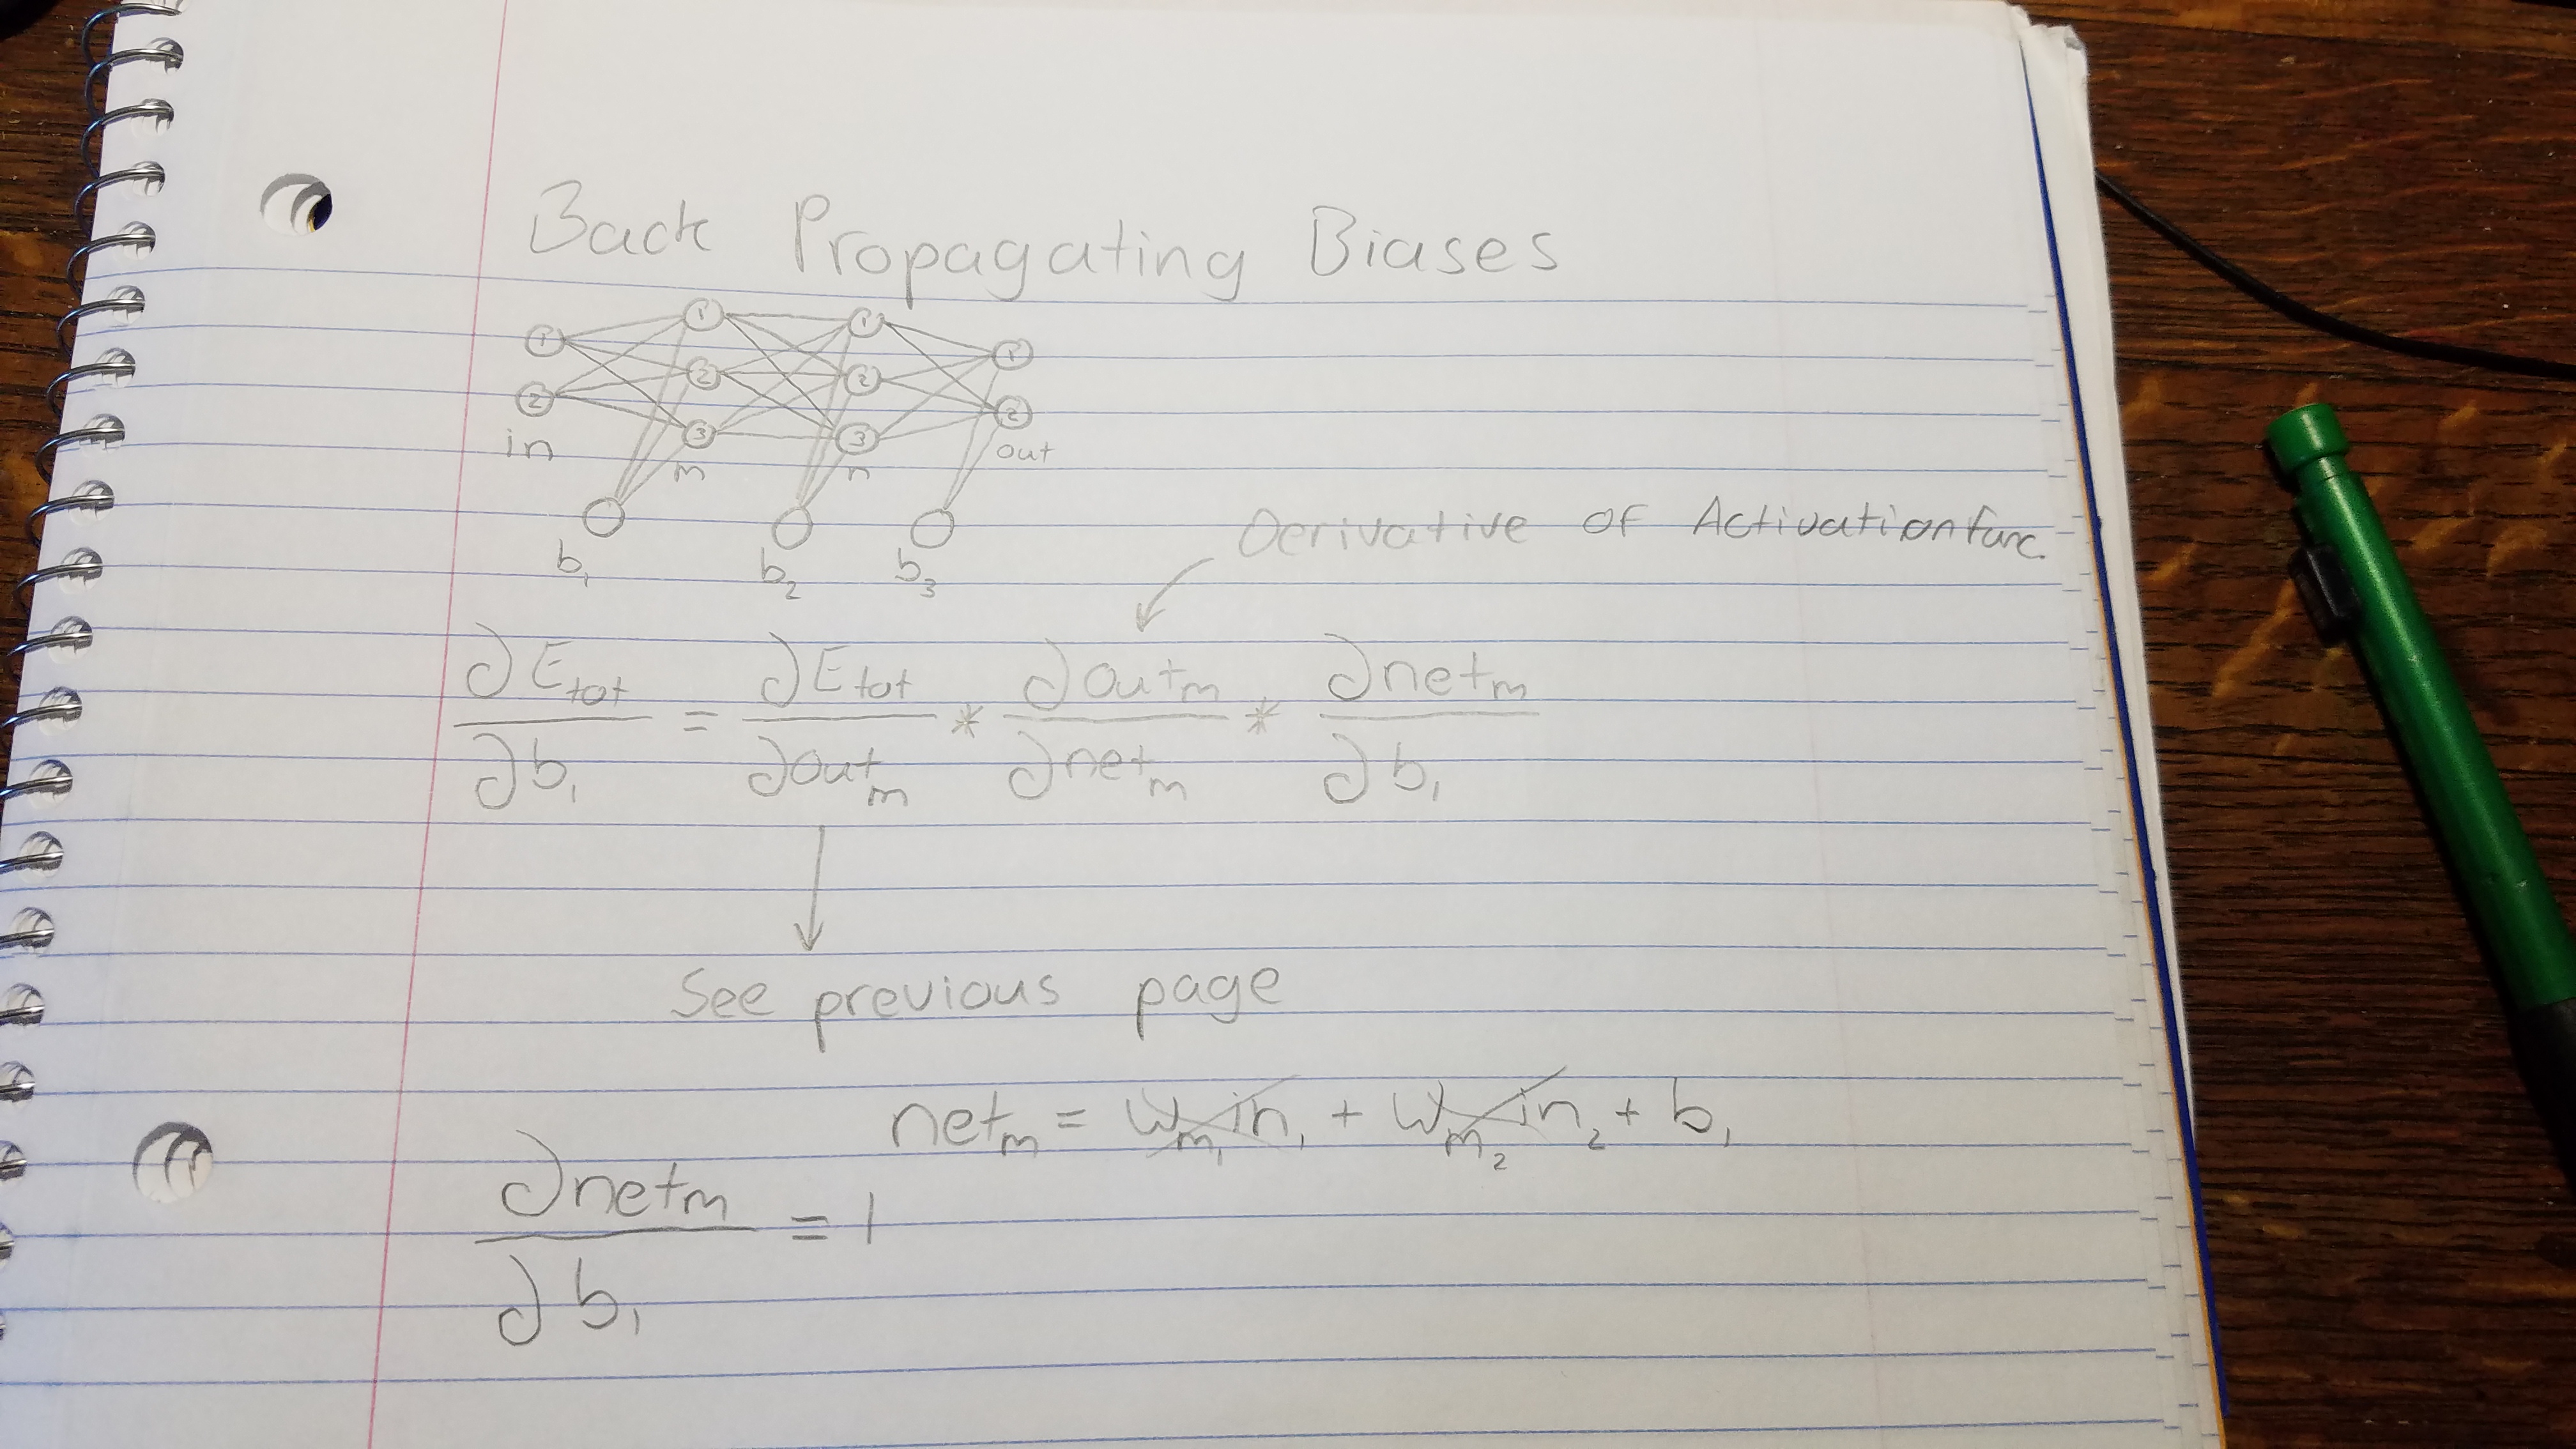 Back Propagating Biases
1 1 1 1
2 2 2 2
in 3 3 out
m n
b1 b2 b3
Derivative of Activation func.
∂Etot / ∂b1 = ∂Etot / ∂outm * ∂outm / ∂netm * ∂netm / ∂b1
See previous page
netm = wm1 in1 + wm2 in2 + b1
∂netm / ∂b1 = 1